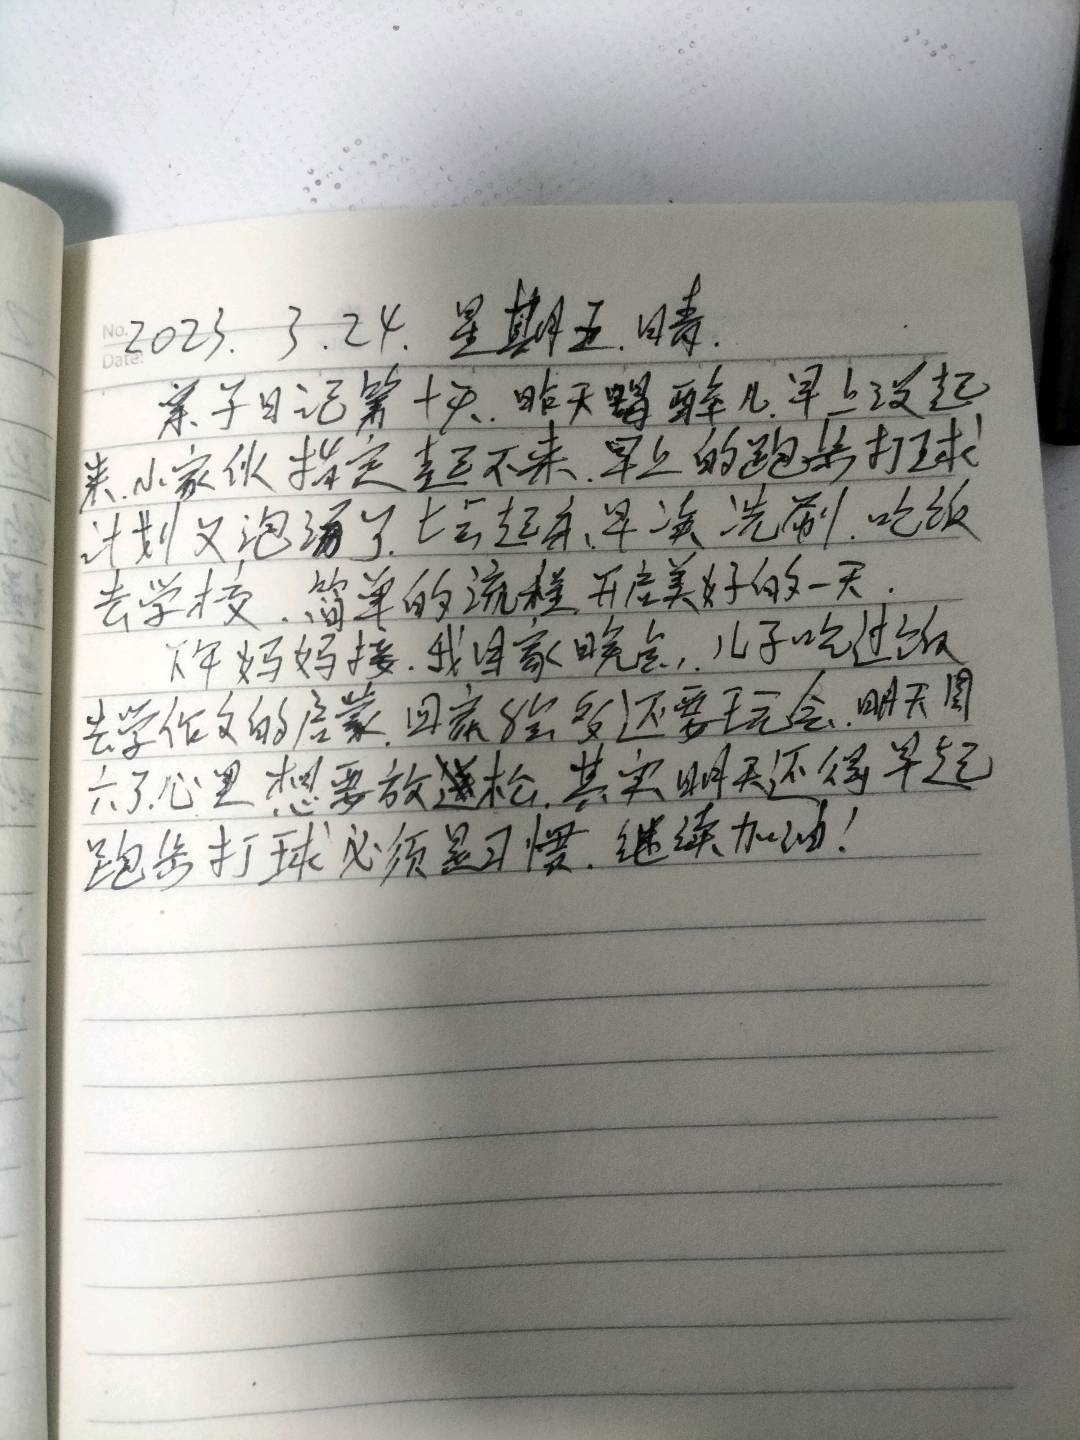 No.
Date:
2023. 3. 24. 星期五. 晴.
亲子日记第十天. 昨天喝醉儿. 早上没起
来. 小家伙指定起不来. 早上的跑步打球
计划又泡汤了. 七点起床、早读洗刷. 吃饭
去学校. 简单的流程开启美好的一天.
下午妈妈接. 我回家晚点, 儿子吃过饭
去学作文的启蒙. 回家8点多还要玩会. 明天周
六了. 心里想要放松. 其实明天还得早起
跑步打球必须是习惯. 继续加油!